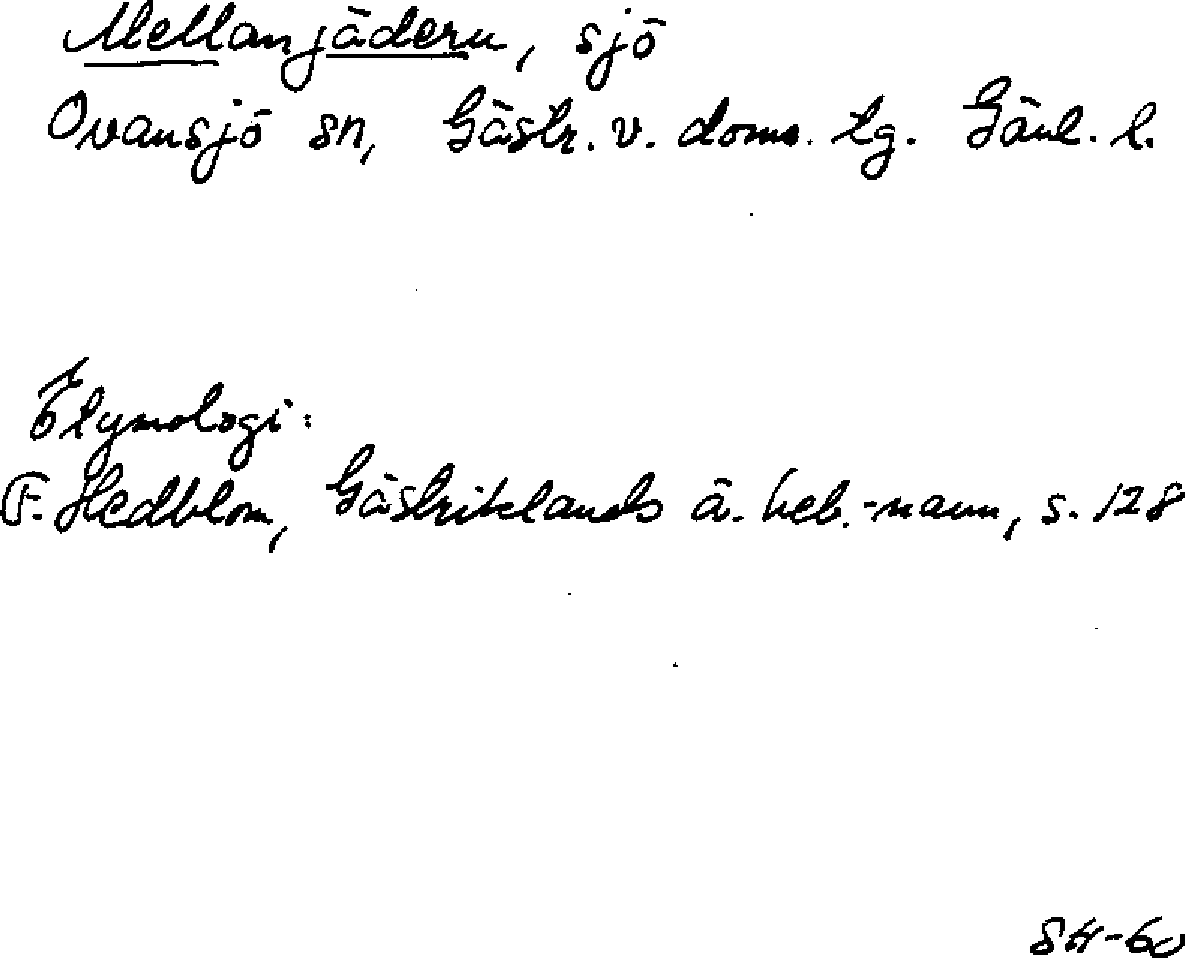 Mellanjädern, sjö
Ovansjö sn, Gästr. v. doms. tg. Gävl. l.
Etymologi:
F. Hedblom, Gästriklands ä. beb.-namn, s. 128
SH-60